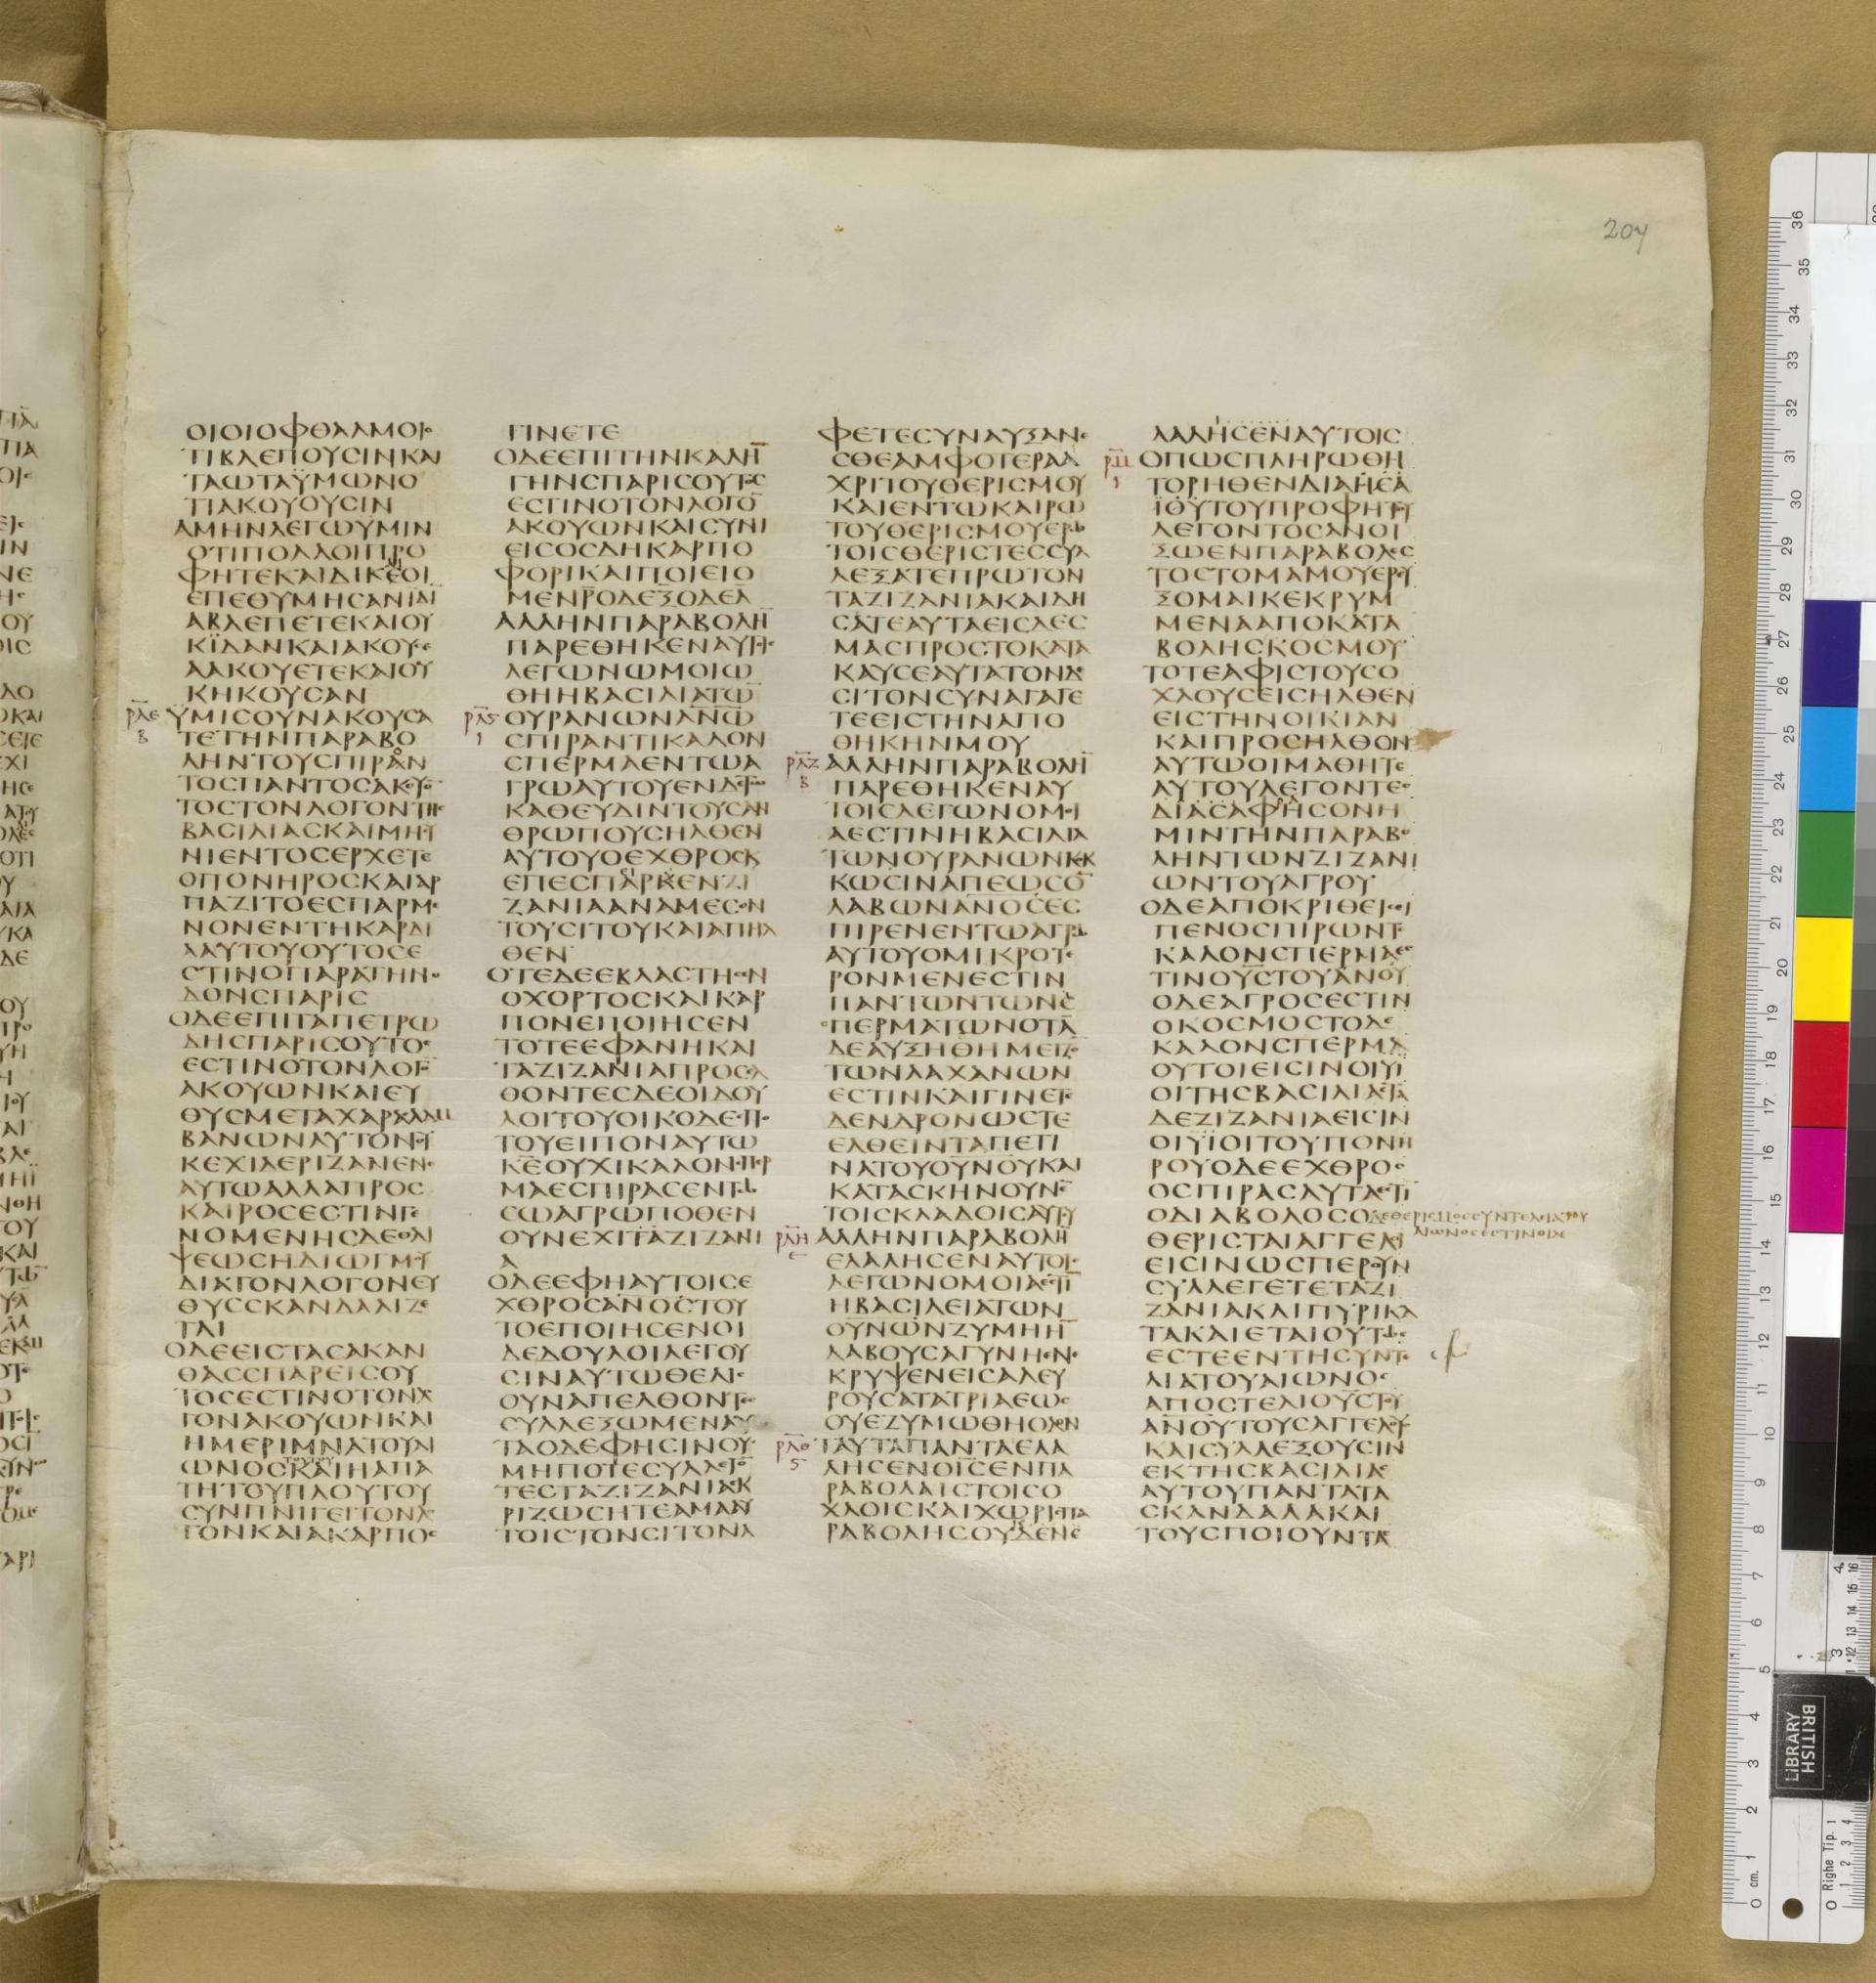 204
ΟΙΟΙΟΦΘΑΛΜΟΙ
ΤΙΒΛΕΠΟΥCΙΝΚΑΙ
ΤΑΩΤΑΫΜΩΝΟ
ΤΙΑΚΟΥΟΥCΙΝ
ΑΜΗΝΛΕΓΩΫΜΙΝ
ΟΤΙΠΟΛΛΟΙΠΡΟ
ΦΗΤΕΚΑΙΔΙΚΕΟΙ
ΕΠΕΘΥΜΗCΑΝΪΔΙ
ΑΒΛΕΠΕΤΕΚΑΙΟΥ
ΚΪΔΑΝΚΑΙΑΚΟΥCΕ
ΑΑΚΟΥΕΤΕΚΑΙΟΥ
ΚΗΚΟΥCΑΝ
ΡΛΕ
Β
ΫΜΙCΟΥΝΑΚΟΥCΑ
ΤΕΤΗΝΠΑΡΑΒΟ
ΛΗΝΤΟΥCΠΙΡΑΝ
ΤΟCΠΑΝΤΟCΑΚΟΥΟ
ΤΟCΤΟΝΛΟΓΟΝΤΗC
ΒΑCΙΛΙΑCΚΑΙΜΗCΥ
ΝΙΕΝΤΟCΕΡΧΕΤΕ
ΟΠΟΝΗΡΟCΚΑΙΑΡ
ΠΑΖΙΤΟΕCΠΑΡΜΕ
ΝΟΝΕΝΤΗΚΑΡΔΙ
ΑΑΥΤΟΥΟΥΤΟCΕ
CΤΙΝΟΠΑΡΑΤΗΝΟ
ΔΟΝCΠΑΡΙC
ΟΔΕΕΠΙΤΑΠΕΤΡΩ
ΔΗCΠΑΡΙCΟΥΤΟC
ΕCΤΙΝΟΤΟΝΛΟΓ
ΑΚΟΥΩΝΚΑΙΕΥ
ΘΥCΜΕΤΑΧΑΡΑCΛΑΜ
ΒΑΝΩΝΑΥΤΟΝΟΥ
ΚΕΧΙΔΕΡΙΖΑΝΕΝΕ
ΑΥΤΩΑΛΛΑΠΡΟC
ΚΑΙΡΟCΕCΤΙΝΓΕ
ΝΟΜΕΝΗCΔΕΘΛΙ
ΨΕΩCΗΔΙΩΓΜΟΥ
ΔΙΑΤΟΝΛΟΓΟΝΕΥ
ΘΥCCΚΑΝΔΑΛΙΖΕ
ΤΑΙ
ΟΔΕΕΙCΤΑCΑΚΑΝ
ΘΑCCΠΑΡΕΙCΟΥ
ΤΟCΕCΤΙΝΟΤΟΝΛΟ
ΓΟΝΑΚΟΥΩΝΚΑΙ
ΗΜΕΡΙΜΝΑΤΟΥΑΙ
ΤΟΥΤΟΥ
ΩΝΟCΚΑΙΗΑΠΑ
ΤΗΤΟΥΠΛΟΥΤΟΥ
CΥΝΠΝΙΓΕΙΤΟΝΛΟ
ΓΟΝΚΑΙΑΚΑΡΠΟC
ΓΙΝΕΤΕ
ΟΔΕΕΠΙΤΗΝΚΑΛΗ
ΓΗΝCΠΑΡΙCΟΥΤΟC
ΕCΤΙΝΟΤΟΝΛΟΓΟ
ΑΚΟΥΩΝΚΑΙCΥΝΙ
ΕΙCΟCΔΗΚΑΡΠΟ
ΦΟΡΙΚΑΙΠΟΙΕΙΟ
ΜΕΝΡΟΔΕΞΟΔΕΛ
ΑΛΛΗΝΠΑΡΑΒΟΛΗ
ΠΑΡΕΘΗΚΕΝΑΥΤΟΙC
ΛΕΓΩΝΩΜΟΙΩ
ΘΗΗΒΑCΙΛΙΑΤΩ
ΡΛϚ
Ι
ΟΥΡΑΝΩΝΑΝΩ
CΠΙΡΑΝΤΙΚΑΛΟΝ
CΠΕΡΜΑΕΝΤΩΑ
ΓΡΩΑΥΤΟΥΕΝΔΕΤΩ
ΚΑΘΕΥΔΙΝΤΟΥCΑΝ
ΘΡΩΠΟΥCΗΛΘΕΝ
ΑΥΤΟΥΟΕΧΘΡΟCΚ
ΕΠΕCΠΑΡΚΕΝΖΙ
ΖΑΝΙΑΑΝΑΜΕCΟΝ
ΤΟΥCΙΤΟΥΚΑΙΑΠΗΛ
ΘΕΝ
ΟΤΕΔΕΕΒΛΑCΤΗCΕΝ
ΟΧΟΡΤΟCΚΑΙΚΑΡ
ΠΟΝΕΠΟΙΗCΕΝ
ΤΟΤΕΕΦΑΝΗΚΑΙ
ΤΑΖΙΖΑΝΙΑΠΡΟCΕΛ
ΘΟΝΤΕCΔΕΟΙΔΟΥ
ΛΟΙΤΟΥΟΙΚΟΔΕCΠΟ
ΤΟΥΕΙΠΟΝΑΥΤΩ
ΚΕΟΥΧΙΚΑΛΟΝCΠΕΡ
ΜΑΕCΠΙΡΑCΕΝΤΩ
CΩΑΓΡΩΠΟΘΕΝ
ΟΥΝΕΧΙΤΑΖΙΖΑΝΙ
Α
ΟΔΕΕΦΗΑΥΤΟΙCΕ
ΧΘΡΟCΑΝΟCΤΟΥ
ΤΟΕΠΟΙΗCΕΝΟΙ
ΔΕΔΟΥΛΟΙΛΕΓΟΥ
CΙΝΑΥΤΩΘΕΛΙC
ΟΥΝΑΠΕΛΘΟΝΤΕC
CΥΛΛΕΞΩΜΕΝΑΥ
ΤΑΟΔΕΦΗCΙΝΟΥ
ΜΗΠΟΤΕCΥΛΛΕΓΟ
ΤΕCΤΑΖΙΖΑΝΙΑΕΚ
ΡΙΖΩCΗΤΕΑΜΑΑΥ
ΤΟΙCΤΟΝCΙΤΟΝΑ
ΦΕΤΕCΥΝΑΥΞΑΝΕ
CΘΕΑΜΦΟΤΕΡΑΑ
ΧΡΙΤΟΥΘΕΡΙCΜΟΥ
ΚΑΙΕΝΤΩΚΑΙΡΩ
ΤΟΥΘΕΡΙCΜΟΥΕΡΩ
ΤΟΙCΘΕΡΙCΤΕCCΥΛ
ΛΕΞΑΤΕΠΡΩΤΟΝ
ΤΑΖΙΖΑΝΙΑΚΑΙΔΗ
CΑΤΕΑΥΤΑΕΙCΔΕC
ΜΑCΠΡΟCΤΟΚΑΤΑ
ΚΑΥCΕΑΥΤΑΤΟΝΔΕ
CΙΤΟΝCΥΝΑΓΑΓΕ
ΤΕΕΙCΤΗΝΑΠΟ
ΘΗΚΗΝΜΟΥ
ΡΛΖ
Β
ΑΛΛΗΝΠΑΡΑΒΟΛΗ
ΠΑΡΕΘΗΚΕΝΑΥ
ΤΟΙCΛΕΓΩΝΟΜΟΙ
ΑΕCΤΙΝΗΒΑCΙΛΙΑ
ΤΩΝΟΥΡΑΝΩΝΚΟΚ
ΚΩCΙΝΑΠΕΩCΟ
ΛΑΒΩΝΑΝΟCΕC
ΠΙΡΕΝΕΝΤΩΑΓΡΩ
ΑΥΤΟΥΟΜΙΚΡΟΤΕ
ΡΟΝΜΕΝΕCΤΙΝ
ΠΑΝΤΩΝΤΩΝC
ΠΕΡΜΑΤΩΝΟΤΑ
ΔΕΑΥΞΗΘΗΜΕΙΖΟ
ΤΩΝΛΑΧΑΝΩΝ
ΕCΤΙΝΚΑΙΓΙΝΕΤΕ
ΔΕΝΔΡΟΝΩCΤΕ
ΕΛΘΕΙΝΤΑΠΕΤΙ
ΝΑΤΟΥΟΥΝΟΥΚΑΙ
ΚΑΤΑCΚΗΝΟΥΝΕ
ΤΟΙCΚΛΑΔΟΙCΑΥΤΟΥ
ΡΛΗ
ΑΛΛΗΝΠΑΡΑΒΟΛΗ
ΕΛΑΛΗCΕΝΑΥΤΟΙC
ΛΕΓΩΝΟΜΟΙΑΕCΤΙ
ΗΒΑCΙΛΕΙΑΤΩΝ
ΟΥΝΩΝΖΥΜΗΗ
ΛΑΒΟΥCΑΓΥΝΗΕΝΕ
ΚΡΥΨΕΝΕΙCΑΛΕΥ
ΡΟΥCΑΤΑΤΡΙΑΕΩC
ΟΥΕΖΥΜΩΘΗΟΛΟΝ
ΡΛΘ
Ϛ
ΤΑΥΤΑΠΑΝΤΑΕΛΑ
ΛΗCΕΝΟΙCΕΝΠΑ
ΡΑΒΟΛΑΙCΤΟΙCΟ
ΧΛΟΙCΚΑΙΧΩΡΙCΠΑ
ΡΑΒΟΛΗCΟΥΔΕΝΕ
ΛΑΛΗCΕΝΑΥΤΟΙC
ΡΜ
Ι
ΟΠΩCΠΛΗΡΩΘΗ
ΤΟΡΗΘΕΝΔΙΑΗCΑ
ΪΟΥΤΟΥΠΡΟΦΗΤΟΥ
ΛΕΓΟΝΤΟCΑΝΟΙ
ΞΩΕΝΠΑΡΑΒΟΛΕC
ΤΟCΤΟΜΑΜΟΥΕΡΕΥ
ΞΟΜΑΙΚΕΚΡΥΜ
ΜΕΝΑΑΠΟΚΑΤΑ
ΒΟΛΗCΚΟCΜΟΥ
ΤΟΤΕΑΦΙCΤΟΥCΟ
ΧΛΟΥCΕΙCΗΛΘΕΝ
ΕΙCΤΗΝΟΙΚΙΑΝ
ΚΑΙΠΡΟCΗΛΘΟΝ
ΑΥΤΩΟΙΜΑΘΗΤΕ
ΑΥΤΟΥΛΕΓΟΝΤΕC
ΔΙΑCΑΦΗCΟΝΗ
ΜΙΝΤΗΝΠΑΡΑΒΟ
ΛΗΝΤΩΝΖΙΖΑΝΙ
ΩΝΤΟΥΑΓΡΟΥ
ΟΔΕΑΠΟΚΡΙΘΕΙCΕΙ
ΠΕΝΟCΠΙΡΩΝΤΟ
ΚΑΛΟΝCΠΕΡΜΑΕC
ΤΙΝΟΥCΤΟΥΑΝΟΥ
ΟΔΕΑΓΡΟCΕCΤΙΝ
ΟΚΟCΜΟCΤΟΔΕ
ΚΑΛΟΝCΠΕΡΜΑ
ΟΥΤΟΙΕΙCΙΝΟΙΥΙ
ΟΙΤΗCΒΑCΙΛΙΑCΤΑ
ΔΕΖΙΖΑΝΙΑΕΙCΙΝ
ΟΙΫΪΟΙΤΟΥΠΟΝΗ
ΡΟΥΟΔΕΕΧΘΡΟC
ΟCΠΙΡΑCΑΥΤΑΕCΤΙ
ΟΔΙΑΒΟΛΟCΟ ΔΕΘΕΡΙCΜΟCCΥΝΤΕΛΙΑΤΟΥ
ΑΙΩΝΟCΕCΤΙΝΟΙΔΕ
ΘΕΡΙCΤΑΙΑΓΓΕΛΟΙ
ΕΙCΙΝΩCΠΕΡΟΥΝ
CΥΛΛΕΓΕΤΕΤΑΖΙ
ΖΑΝΙΑΚΑΙΠΥΡΙΚΑ
ΤΑΚΑΙΕΤΑΙΟΥΤΩC
ΕCΤΕΕΝΤΗCΥΝΤΕ
ΛΙΑΤΟΥΑΙΩΝΟC
ΑΠΟCΤΕΛΙΟΥCΤΟΥ
ΑΝΟΥΤΟΥCΑΓΓΕΛΟΥC
ΚΑΙCΥΛΛΕΞΟΥCΙΝ
ΕΚΤΗCΒΑCΙΛΙΑC
ΑΥΤΟΥΠΑΝΤΑΤΑ
CΚΑΝΔΑΛΑΚΑΙ
ΤΟΥCΠΟΙΟΥΝΤΑC
BRITISH
LIBRARY
0 cm. 1 2 3 4 5 6 7 8 9 10 11 12 13 14 15 16 17 18 19 20 21 22 23 24 25 26 27 28 29 30 31 32 33 34 35 36
0 Righe Tip. 1